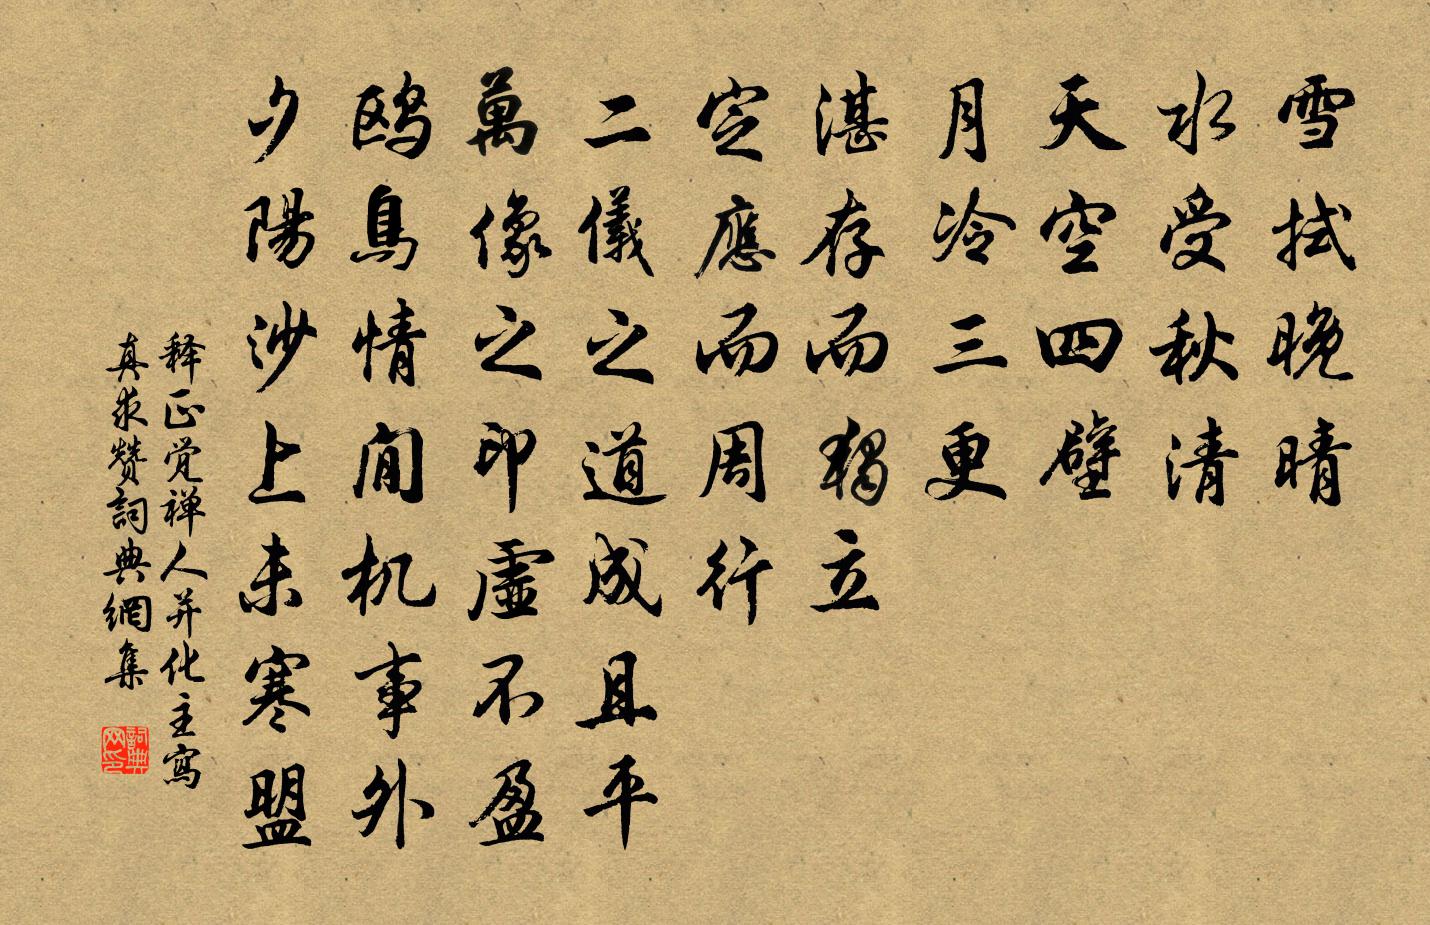 雪拭晚晴
水受秋清
天空四壁
月冷三更
湛存而独立
定應而周行
二儀之道成且平
萬像之印虛不盈
鸥鳥情閒机事外
夕陽沙上未寒盟
释正觉禅人并化主寫
真求赞詞典網集
詞典
网印